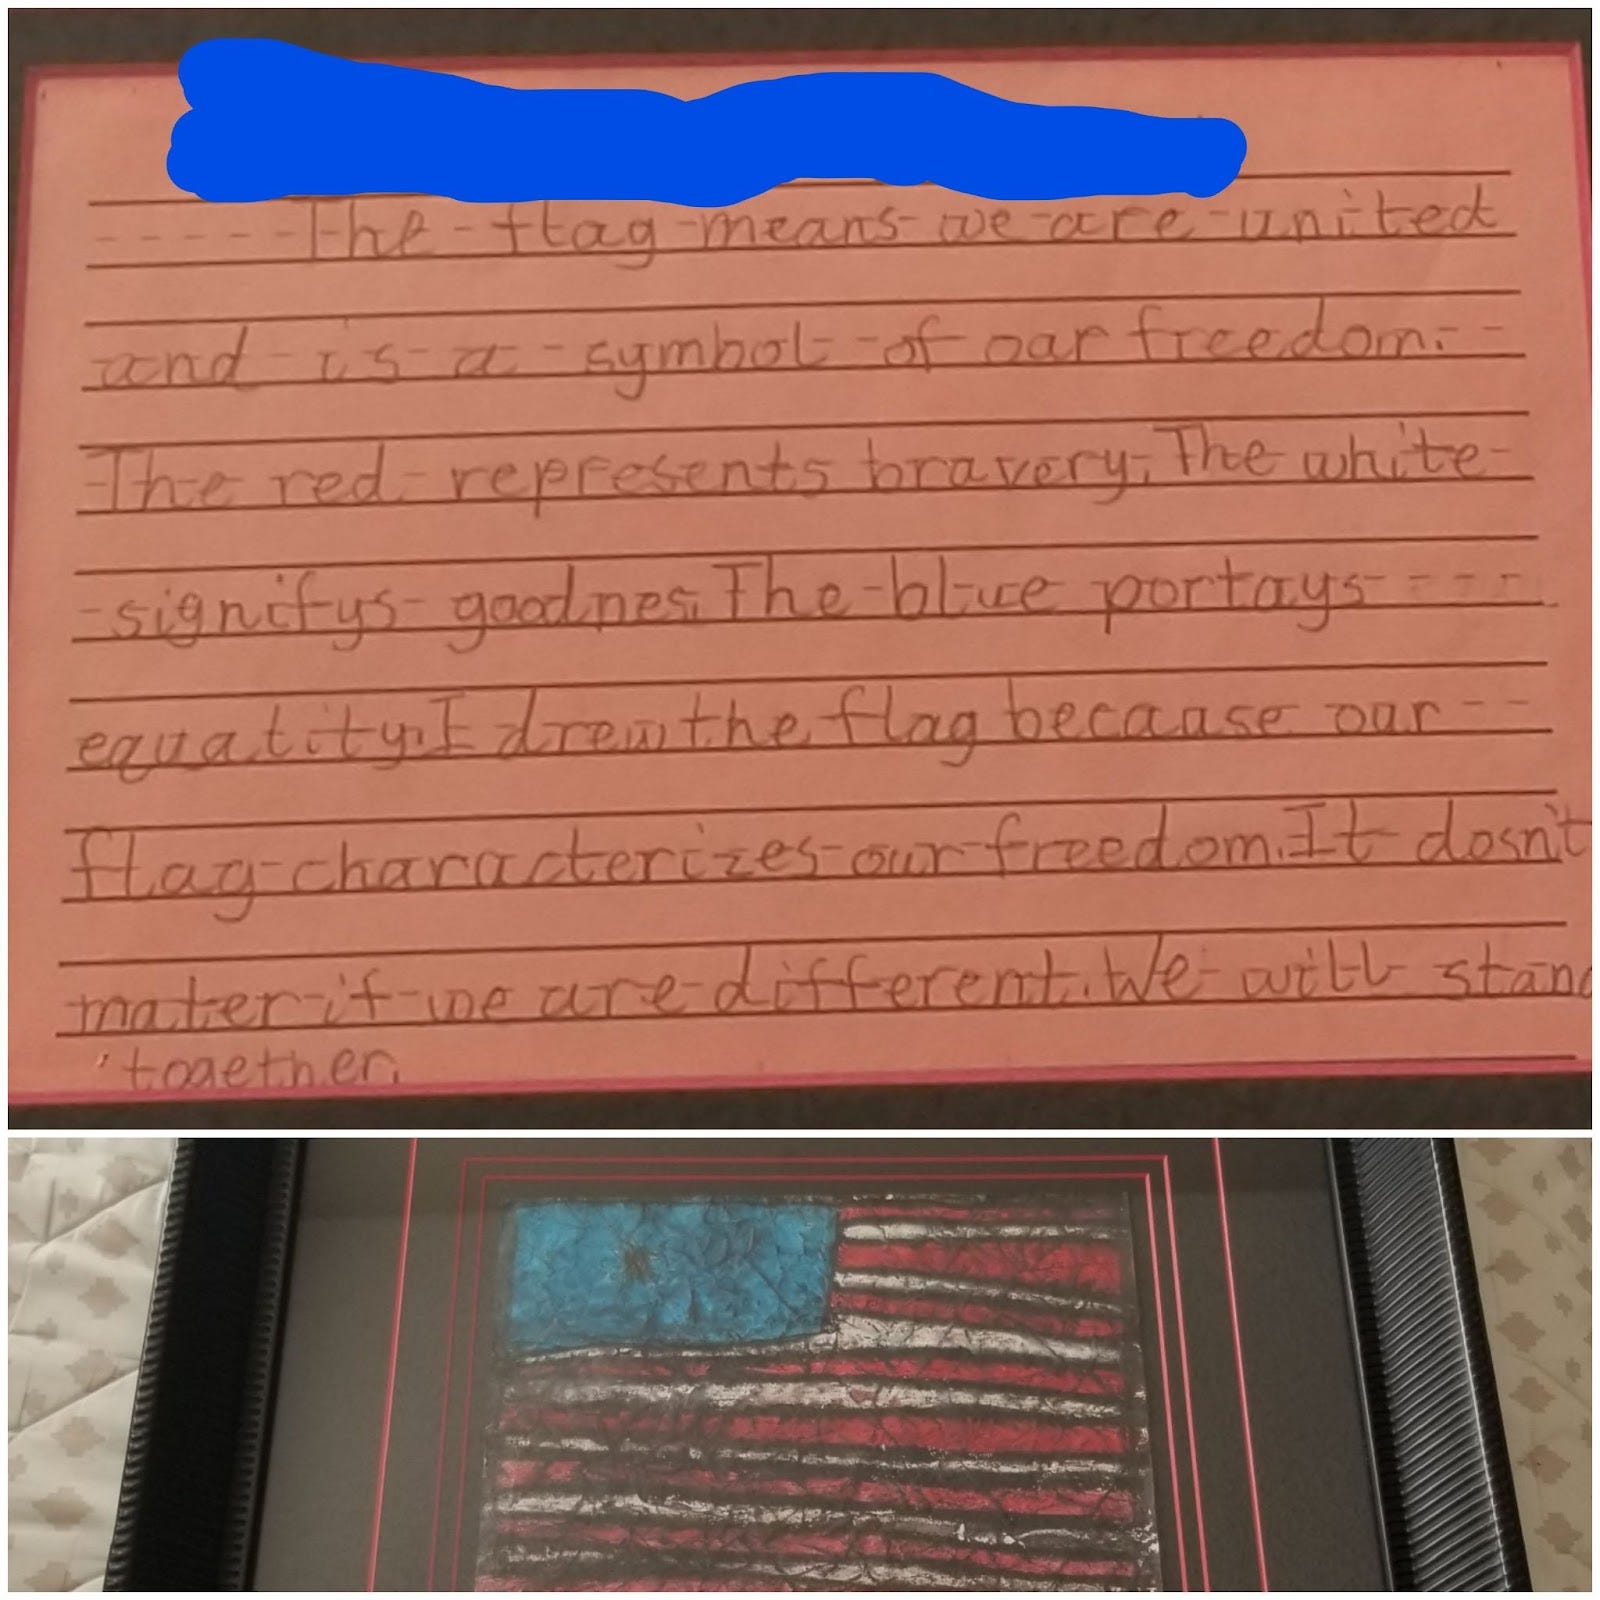 The flag means we are united
and is a symbol of our freedom.
The red represents bravery. The white
signifys goodnes. The blue portays
equality. I drew the flag because our
flag characterizes our freedom. It dosn't
mater if we are different. We will stand
together.